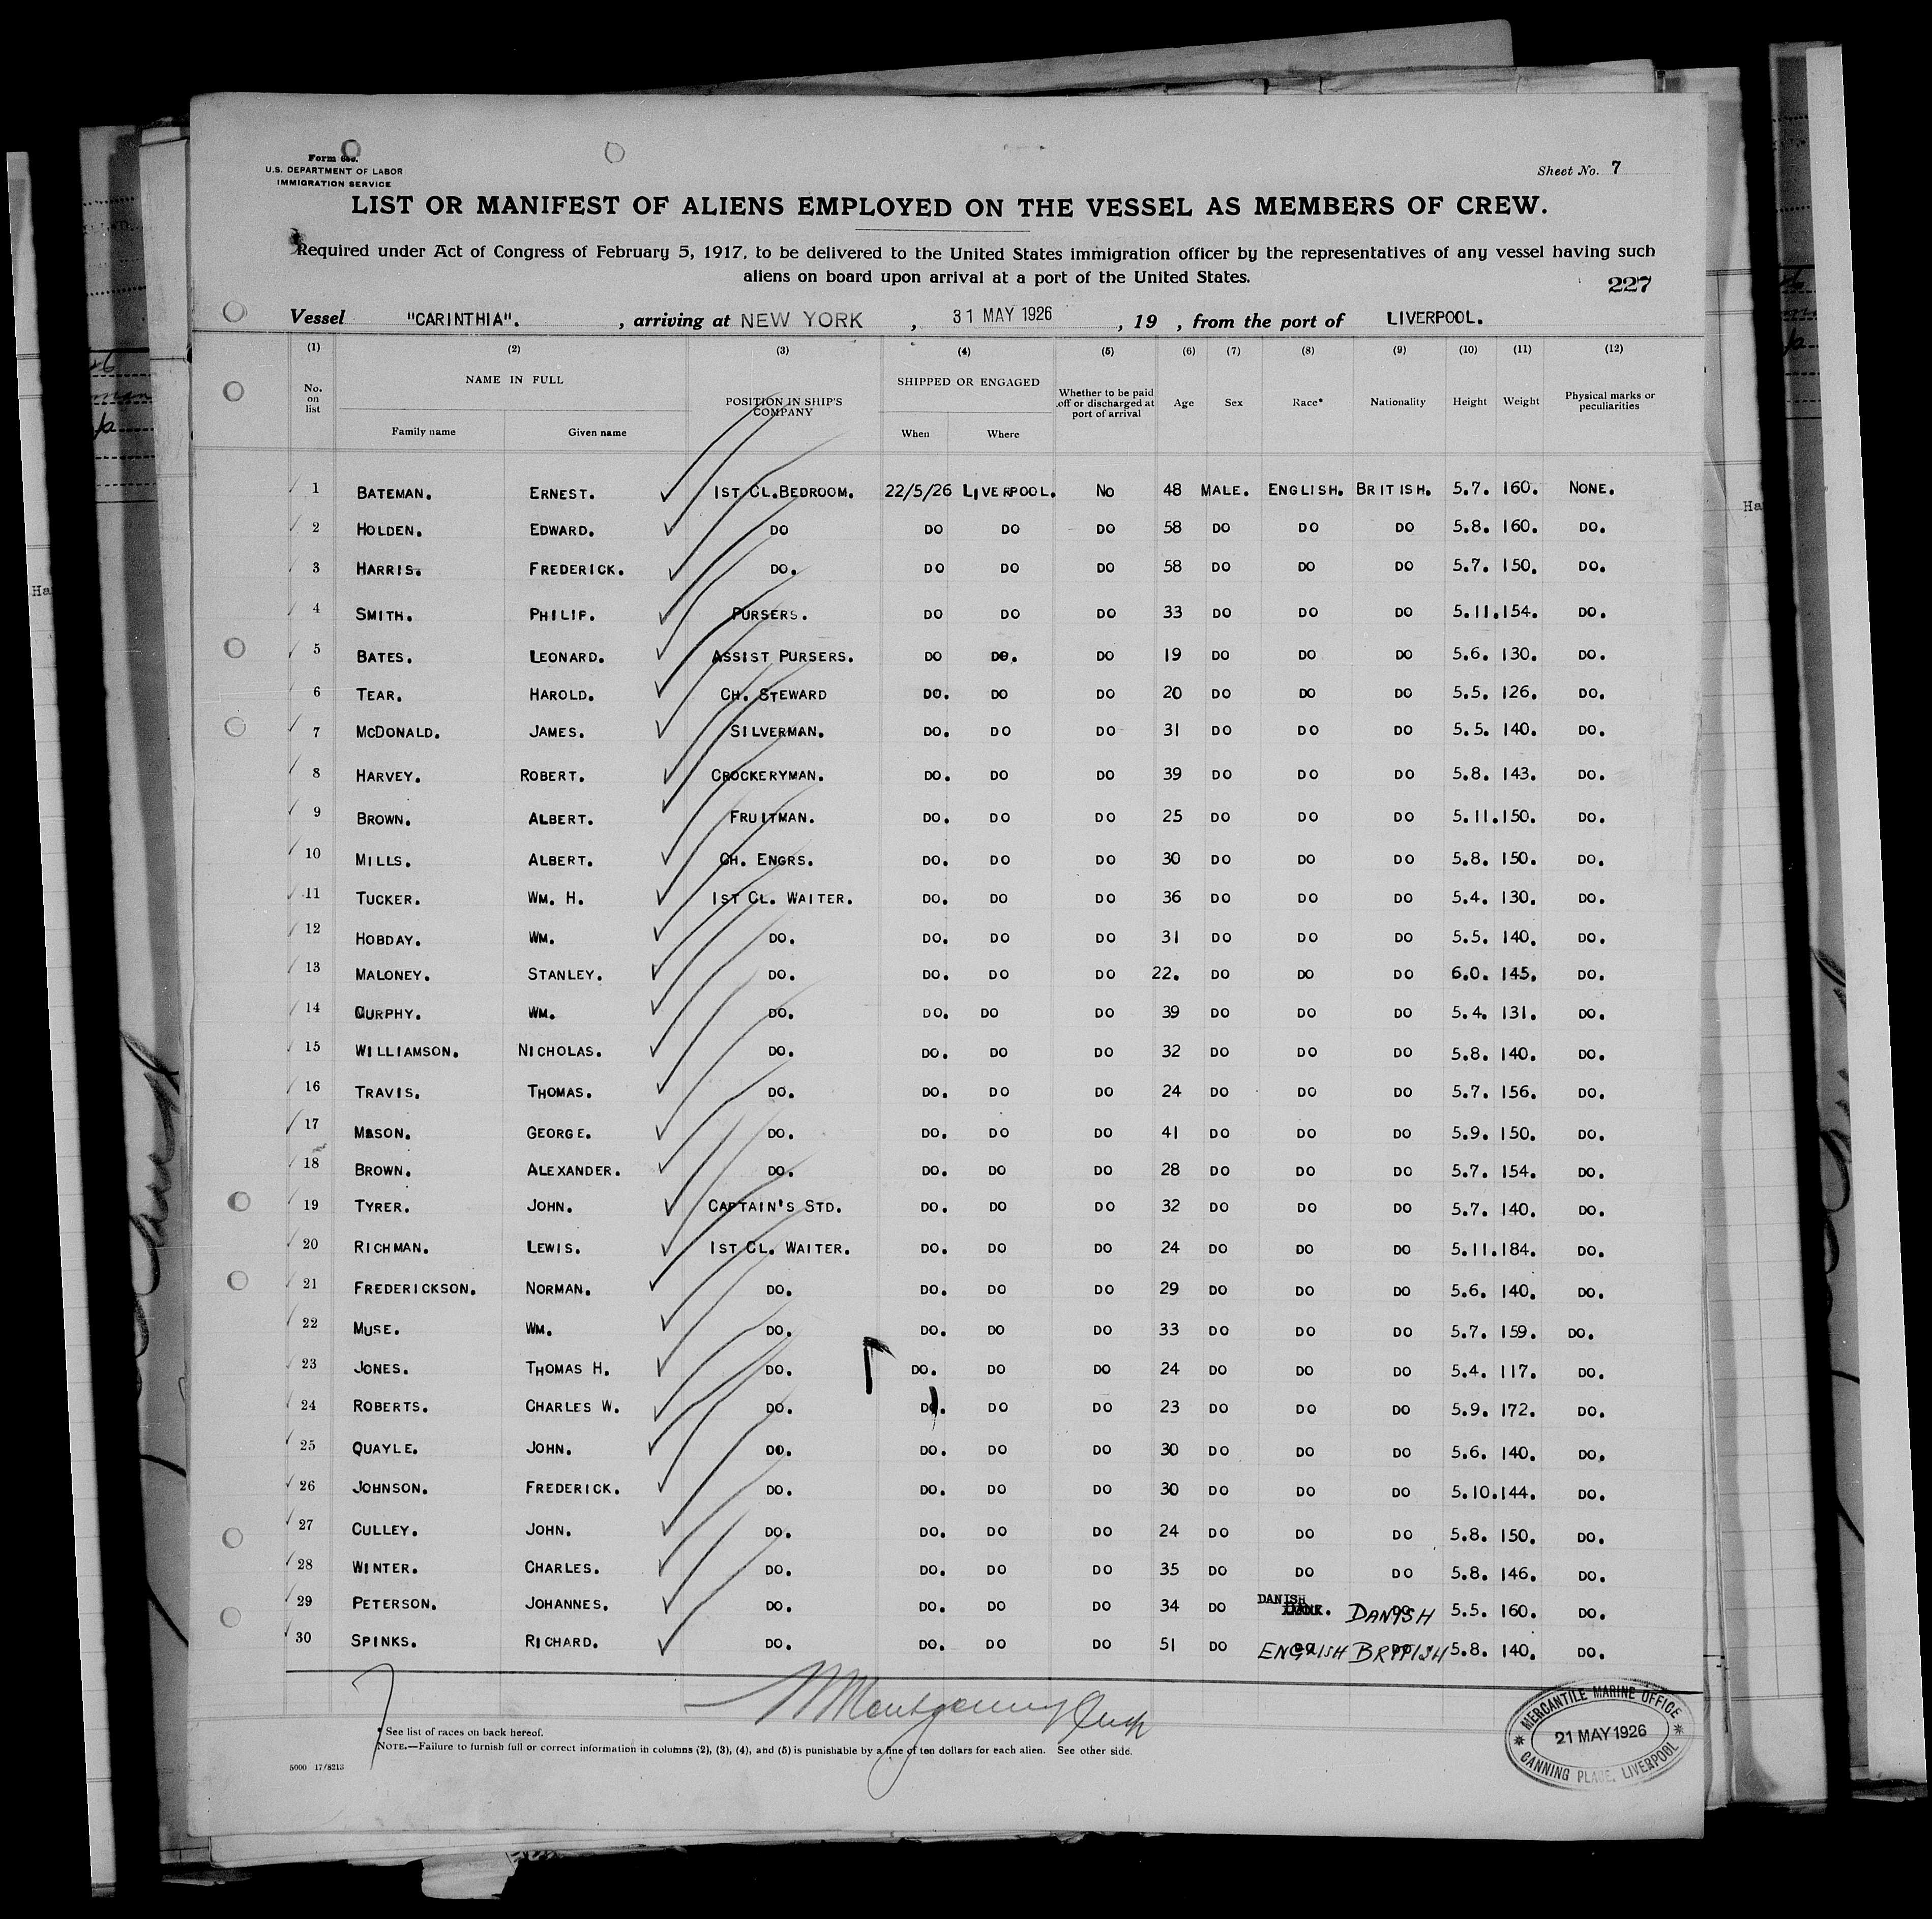 Form 689.
U.S. DEPARTMENT OF LABOR
IMMIGRATION SERVICE
Sheet No. 7
LIST OR MANIFEST OF ALIENS EMPLOYED ON THE VESSEL AS MEMBERS OF CREW.
Required under Act of Congress of February 5, 1917, to be delivered to the United States immigration officer by the representatives of any vessel having such
aliens on board upon arrival at a port of the United States.
227
Vessel "CARINTHIA". , arriving at NEW YORK , 31 MAY 1926 , 19 , from the port of LIVERPOOL.
(1) (2) (3) (4) (5) (6) (7) (8) (9) (10) (11) (12)
No. on list NAME IN FULL Family name Given name POSITION IN SHIP'S COMPANY SHIPPED OR ENGAGED When Where Whether to be paid off or discharged at port of arrival Age Sex Race* Nationality Height Weight Physical marks or peculiarities
1 BATEMAN. ERNEST. 1ST CL.BEDROOM. 22/5/26 LIVERPOOL. NO 48 MALE. ENGLISH. BRITISH. 5.7. 160. NONE.
2 HOLDEN. EDWARD. DO DO DO DO 58 DO DO DO 5.8. 160. DO.
3 HARRIS. FREDERICK. DO. DO DO DO 58 DO DO DO 5.7. 150. DO.
4 SMITH. PHILIP. PURSERS. DO DO DO 33 DO DO DO 5.11. 154. DO.
5 BATES. LEONARD. ASSIST PURSERS. DO DO. DO 19 DO DO DO 5.6. 130. DO.
6 TEAR. HAROLD. CH. STEWARD DO. DO DO 20 DO DO DO 5.5. 126. DO.
7 MCDONALD. JAMES. SILVERMAN. DO. DO DO 31 DO DO DO 5.5. 140. DO.
8 HARVEY. ROBERT. CROCKERYMAN. DO. DO DO 39 DO DO DO 5.8. 143. DO.
9 BROWN. ALBERT. FRUITMAN. DO. DO DO 25 DO DO DO 5.11. 150. DO.
10 MILLS. ALBERT. CH. ENGRS. DO. DO DO 30 DO DO DO 5.8. 150. DO.
11 TUCKER. WM. H. 1ST CL. WAITER. DO. DO DO 36 DO DO DO 5.4. 130. DO.
12 HOBDAY. WM. DO. DO. DO DO 31 DO DO DO 5.5. 140. DO.
13 MALONEY. STANLEY. DO. DO. DO DO 22. DO DO DO 6.0. 145. DO.
14 GURPHY. WM. DO. DO. DO DO 39 DO DO DO 5.4. 131. DO.
15 WILLIAMSON. NICHOLAS. DO. DO. DO DO 32 DO DO DO 5.8. 140. DO.
16 TRAVIS. THOMAS. DO. DO. DO DO 24 DO DO DO 5.7. 156. DO.
17 MASON. GEORGE. DO. DO. DO DO 41 DO DO DO 5.9. 150. DO.
18 BROWN. ALEXANDER. DO. DO. DO DO 28 DO DO DO 5.7. 154. DO.
19 TYRER. JOHN. CAPTAIN'S STD. DO. DO DO 32 DO DO DO 5.7. 140. DO.
20 RICHMAN. LEWIS. 1ST CL. WAITER. DO. DO DO 24 DO DO DO 5.11. 184. DO.
21 FREDERICKSON. NORMAN. DO. DO. DO DO 29 DO DO DO 5.6. 140. DO.
22 MUSE. WM. DO. DO. DO DO 33 DO DO DO 5.7. 159. DO.
23 JONES. THOMAS H. DO. DO. DO DO 24 DO DO DO 5.4. 117. DO.
24 ROBERTS. CHARLES W. DO. DO. DO DO 23 DO DO DO 5.9. 172. DO.
25 QUAYLE. JOHN. DO. DO. DO DO 30 DO DO DO 5.6. 140. DO.
26 JOHNSON. FREDERICK. DO. DO. DO DO 30 DO DO DO 5.10. 144. DO.
27 CULLEY. JOHN. DO. DO. DO DO 24 DO DO DO 5.8. 150. DO.
28 WINTER. CHARLES. DO. DO. DO DO 35 DO DO DO 5.8. 146. DO.
29 PETERSON. JOHANNES. DO. DO. DO DO 34 DO DANISH DANISH 5.5. 160. DO.
30 SPINKS. RICHARD. DO. DO. DO DO 51 DO ENGLISH BRITISH 5.8. 140. DO.
* See list of races on back hereof.
NOTE.—Failure to furnish full or correct information in columns (2), (3), (4), and (5) is punishable by a fine of ten dollars for each alien. See other side.
5000 17/8213
MERCANTILE MARINE OFFICE
21 MAY 1926
CANNING PLACE, LIVERPOOL